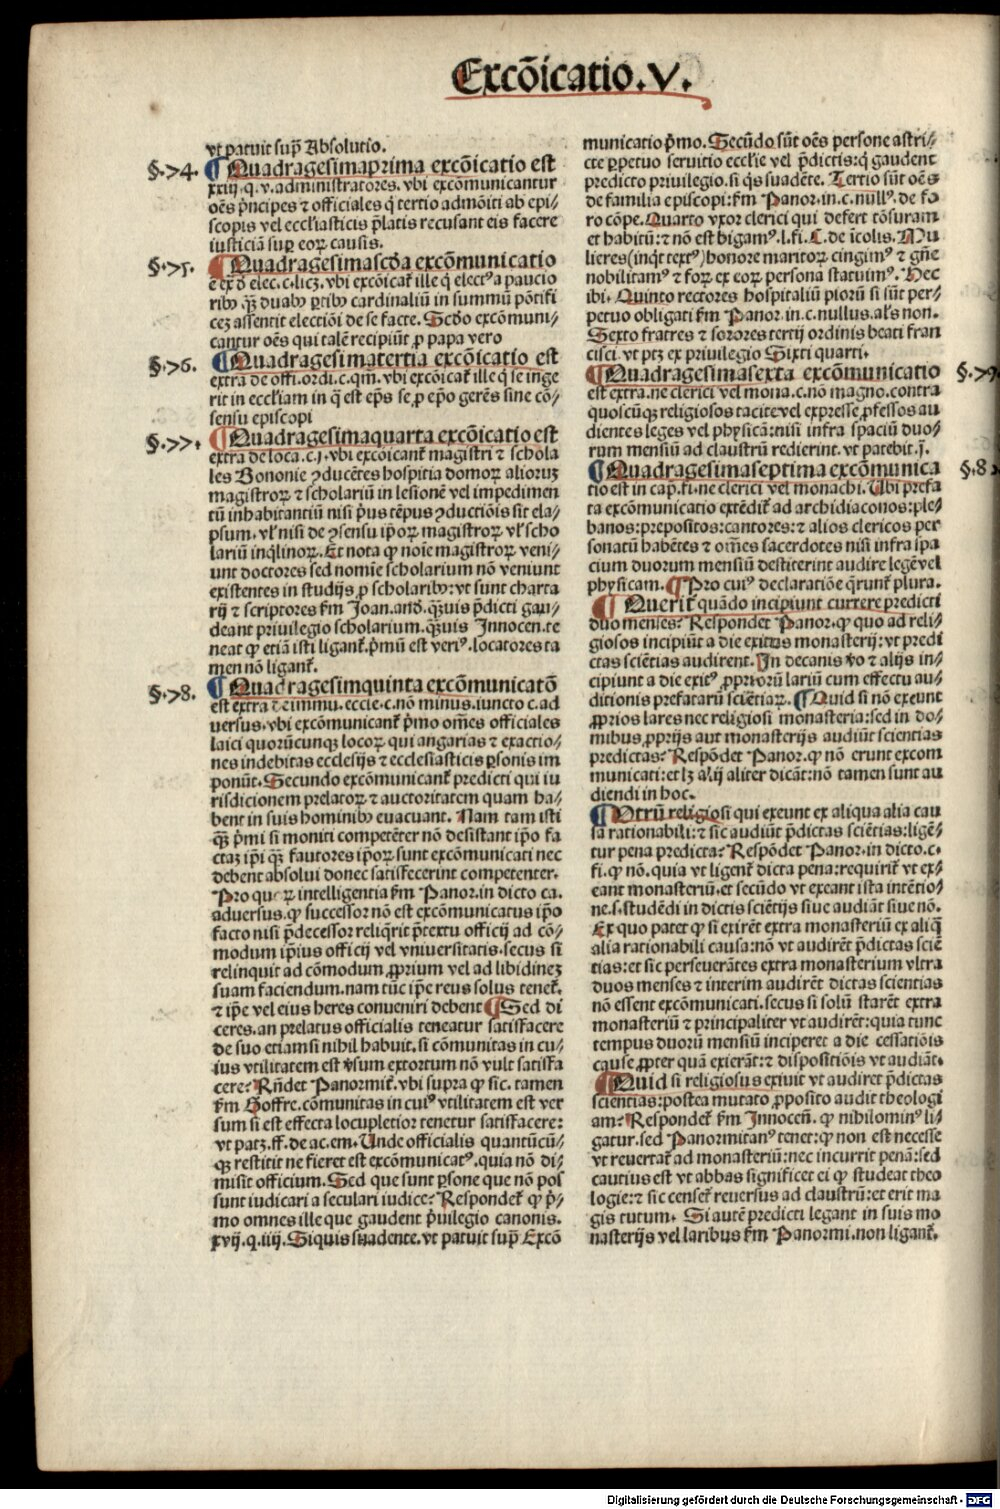 Excõicatio.V.
vt patuit supͥ Absolutio.
§.74. ¶ Quadragesimaprima excõicatio est
xxiij.q.v.administratores.vbi excõmunicantur
oẽs pͥncipes ⁊ officiales q̇ tertio admõiti ab epi⸗
scopis vel eccl̓iasticis p̄latis recusant eis facere
iusticiã sup̱ eoꝝ causis.
§.75. ¶ Quadragesimascd̓a excõmunicatio
e ex d̓ elec.c.licꝫ.vbi excõicat̃ ille q̇ elect⁹ a paucio
ribꝰ qꝫ̃ duabꝰ ꝑtibꝰ cardinaliũ in summũ põtifi
ceꝫ assentit electiõi de se facte. Scd̓o excõmuni⸗
cantur oẽs qui talẽ recipiũt ꝓ papa vero
§.76. ¶ Quadragesimatertia excõmunicatio est
extra de offi.ordi.c.qm̃.vbi excõicat̃ ille q̇ se inge
rit in eccl̓iam in q̃ est ep̃s se ꝓ ep̃o gerẽs sine cõ⸗
sensu episcopi
§.77. ¶ Quadragesimaquarta excõicatio est
extra de loca.c.j.vbi excõicant̃ magistri ⁊ schola
les Bononie ꝯducẽtes hospitia domoꝝ alioruꝫ
magistroꝝ ⁊ scholariũ in lesionẽ vel impedimen
tũ inhabitantiũ nisi pͥus tẽpus ꝯductiõis sit ela⸗
psum.vl̓ nisi de ꝯsensu ip̃oꝝ magistroꝝ vl̓ scho
lariũ inq̇linoꝝ.Et nota ꝙ noĩe magistroꝝ veni⸗
unt doctores sed nomĩe scholarium nõ veniunt
existentes in studijs ꝓ scholaribꝰ:vt sunt charta
rij ⁊ scriptores ẜm Joan.and̓.qꝫ̃uis p̃dicti gau⸗
deant priuilegio scholarium.qꝫ̃uis Innocen.te
neat ꝙ etiã isti ligant̃.pͥmũ est veri⁹.locatores ta
men nõ ligant̃.
§.78. ¶ Quadragesimquinta excõmunicatõ
est extra de immu.eccle.c.nõ minus.iuncto c.ad
uersus.vbi excõmunicant̃ pͥmo om̃es officiales
laici quorũcunqꝫ locoꝝ qui angarias ⁊ exactio⸗
nes indebitas ecclesijs ⁊ ecclesiasticis ꝑsonis im
ponũt.Secundo excõmunicant̃ predicti qui iu
risdicionem prelatoꝝ ⁊ auctoritatem quam ha⸗
bent in suis hominibꝰ euacuant. Nam tam isti
qꝫ̃ pͥmi si moniti competẽter nõ desistant ip̃o fa
ctaꝫ ip̃i qꝫ̃ fautores ip̃oꝝ sunt excõmunicati nec
debent absolui donec satisfecerint competenter.
Pro quoꝝ intelligentia ẜm Panor.in dicto ca.
aduersus.ꝙ successor nõ est excõmunicatus ip̃o
facto nisi p̃decessor reliq̇rit p̃textu officij ad cõ⸗
modum ip̃ius officij vel vniuersitatis.secus si
relinquit ad cõmodum ꝓprium vel ad libidineꝫ
suam faciendum.nam tũc ip̃e reus solus tenet̃.
⁊ ip̃e vel eius heres conueniri debent ¶ Sed di
ceres.an prelatus officialis teneatur satisfacere
de suo etiamsi nihil habuit.si cõmunitas in cu⸗
ius vtilitatem est v̓sum extortum nõ vult satisfa
cere? Rñdet Panormit̃.vbi supra ꝙ sic.tamen
ẜm Goffre.cõmunitas in cui⁹ vtilitatem est ver
sum si est effecta locupletior tenetur satisfacere:
vt patꝫ.ff.de ac.em.Unde officialis quantũcũ⸗
qꝫ restitit ne fieret est excõmunicat⁹.quia nõ di⸗
misit officium.Sed que sunt ꝑsone que nõ pos
sunt iudicari a seculari iudice? Respondet̃ ꝙ pͥ⸗
mo omnes ille que gaudent pͥuilegio canonis.
xvij.q.iiij.Siquis suadente.vt patuit supͥ Excõ
municatio pͥmo. Secũdo sũt oẽs persone astri⸗
cte ꝑpetuo seruitio eccl̓ie vel p̃dictis:q̇ gaudent
predicto priuilegio.si q̇s suadẽte. Tertio sũt oẽs
de familia episcopi:ẜm Panor.in.c.null⁹.de fo
ro cõpe. Quarto vxor clerici qui defert tõsuram
et habitũ:⁊ nõ est bigam⁹.l.fi.C.de ĩcolis. Mu
lieres (inq̇t text⁹) honore maritoꝝ cingim⁹ ⁊ gñe
nobilitam⁹ ⁊ foꝝ ex eoꝝ persona statuim⁹. Hec
ibi. Quinto rectores hospitaliũ pioru̇ si sũt per⸗
petuo obligati ẜm Panor.in.c.nullus.al̓s non.
Sexto fratres ⁊ sorores tertij ordinis beati fran
cisci.vt ptꝫ ex priuilegio Sixti quarti.
¶ Quadragesimasexta excõmunicatio §.79
est extra.ne clerici vel mona.c.nõ magno.contra
quoscũqꝫ religiosos tacite vel expresse ꝓfessos au
dientes leges vel physicã:nisi infra spaciũ duo⸗
rum mensiũ ad claustrũ redierint.vt patebit.j.
¶ Quadragesimaseptima excõmunica §.8
tio est in cap.fi.ne clerici vel monachi. Ubi prefa
ta excõmunicatio extẽdit̃ ad archidiaconos:ple⸗
banos:prepositos:cantores:⁊ alios clericos per
sonatũ habẽtes ⁊ om̃es sacerdotes nisi infra spa
cium duorum mensiũ destiterint audire legẽ vel
physicam. ¶ Pro cui⁹ declaratiõe q̃runt̃ plura.
¶ Querit̃ quãdo incipiunt currere predicti
duo menses? Respondet Panor.ꝙ quo ad reli⸗
giosos incipiũt a die exitus monasterij:vt predi
ctas sciẽtias audirent. In decanis v̓o ⁊ alijs in⸗
cipiunt a die exit⁹ ꝓprioru̇ lariũ cum effectu au⸗
ditionis prefatarũ sciẽtiaꝝ. ¶ Quid si nõ exeunt
ꝓprios lares nec religiosi monasteria:sed in do⸗
mibus ꝓprijs aut monasterijs audiũt scientias
predictas? Respõdet Panor.ꝙ nõ erunt excom
municati:et lꝫ alij aliter dicãt:nõ tamen sunt au
diendi in hoc.
¶ Utrũ religiosi qui exeunt ex aliqua alia cau
sa rationabili:⁊ sic audiũt p̃dictas sciẽtias:ligẽ⸗
tur pena predicta? Respõdet Panor.in dicto.c.
fi.ꝙ nõ.quia vt ligent̃ dicta pena:requirit̃ vt ex⸗
eant monasteriũ.et secũdo vt exeant ista intẽtio⸗
ne.s.studẽdi in dictis sciẽtijs siue audiãt siue nõ.
Ex quo patet ꝙ si exirẽt extra monasteriũ ex aliq̃
alia rationabili causa:nõ vt audirẽt p̃dictas sciẽ
tias:et sic perseuerãtes extra monasterium vltra
duos menses ⁊ interim audirẽt dictas scientias
nõ essent excõmunicati.secus si solũ starẽt extra
monasteriũ ⁊ principaliter vt audirẽt:quia tunc
tempus duorũ mensiũ inciperet a die cessatiõis
cause ꝓpter quã exierãt:⁊ dispositiõis vt audiãt.
¶ Quid si religiosus exiuit vt audiret p̃dictas
scientias:postea mutato ꝓposito audit theologi
am? Respondet̃ ẜm Innocen̄. ꝙ nihilomin⁹ li⸗
gatur.sed Panormitan⁹ tenet:ꝙ non est necesse
vt reuertat̃ ad monasteriũ:nec incurrit penã:sed
cautius est vt abbas significet ei ꝙ studeat theo
logie:⁊ sic censet̃ reuersus ad claustrũ:et erit ma
gis tutum. Si autẽ predicti legant in suis mo
nasterijs vel laribus ẜm Panormi.non ligant̃.
Digitalisierung gefördert durch die Deutsche Forschungsgemeinschaft - DFG